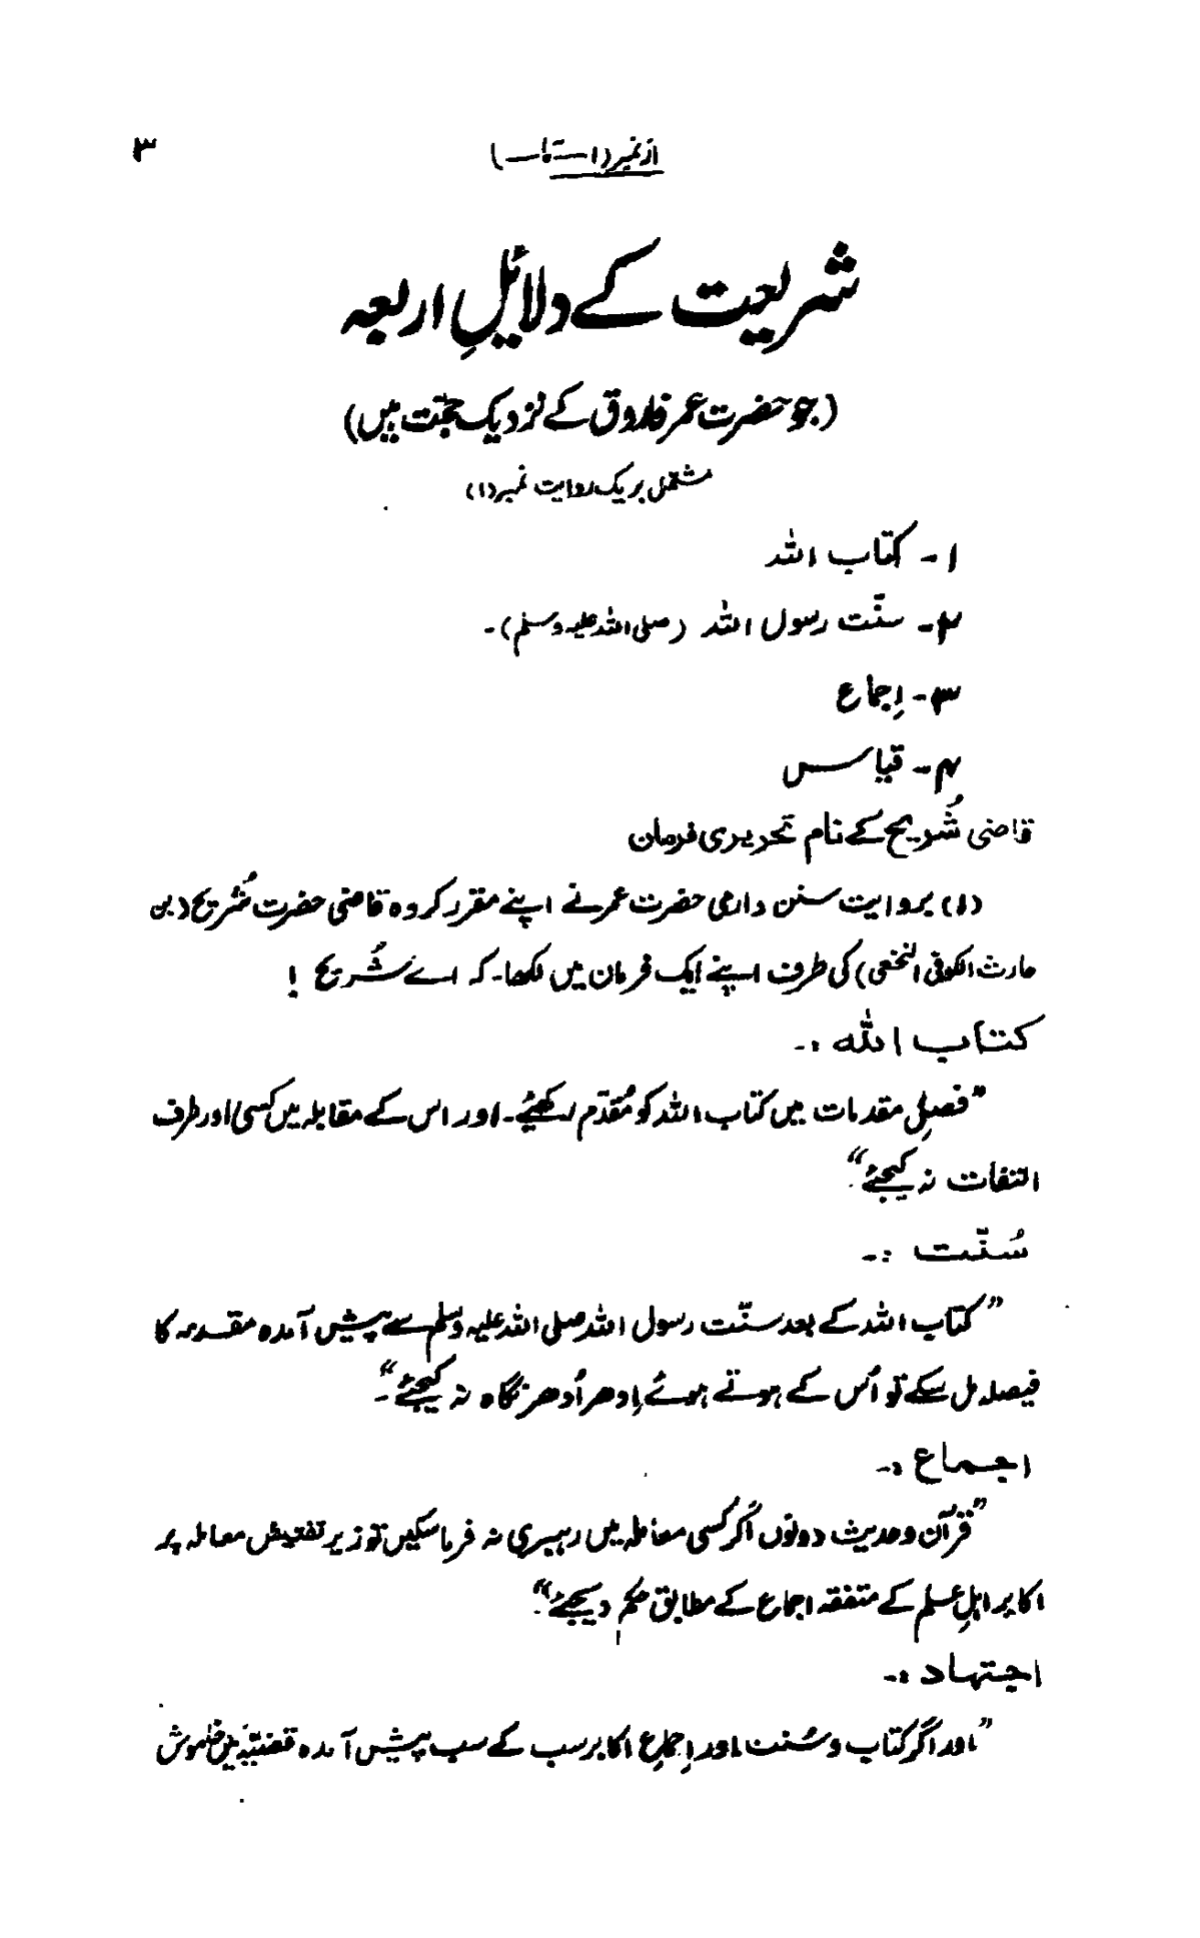 از نمبر (۱ — تا —)
۳
شریعت کے دلائلِ اربعہ
(جو حضرت عمر فاروق کے نزدیک حجّت ہیں)
مشتمل بر یک روایت نمبر (۱)
۱ - کتاب اللہ
۲ - سنّت رسول اللہ (صلی اللہ علیہ وسلم) -
۳ - اِجماع
۴ - قیاس
قاضی شُریح کے نام تحریری فرمان
(۱) بروایت سنن دارمی حضرت عمر نے اپنے مقرر کردہ قاضی حضرت شُریح (بن
حارث الکوفی النخعی) کی طرف اپنے ایک فرمان میں لکھا۔ کہ اے شُریح !
کتاب اللہ :-
”فصلِ مقدمات میں کتاب اللہ کو مُقدّم رکھیئے۔ اور اس کے مقابلہ میں کسی اور طرف
التفات نہ کیجئے“
سُنّت :-
”کتاب اللہ کے بعد سنّت رسول اللہ صلی اللہ علیہ وسلم سے پیش آمدہ مقدمہ کا
فیصلہ مل سکے تو اُس کے ہوتے ہوئے اِدھر اُدھر نگاہ نہ کیجئے“۔
اجماع :-
”قرآن و حدیث دونوں اگر کسی معاملہ میں رہبری نہ فرما سکیں تو زیر تفتیش معاملہ پر
اکابر اہلِ علم کے متفقہ اجماع کے مطابق حکم دیجئے“۔
اجتہاد :-
”اور اگر کتاب و سُنت اور اِجماعِ اکابر سب کے سب پیش آمدہ قضیّہ میں خاموش